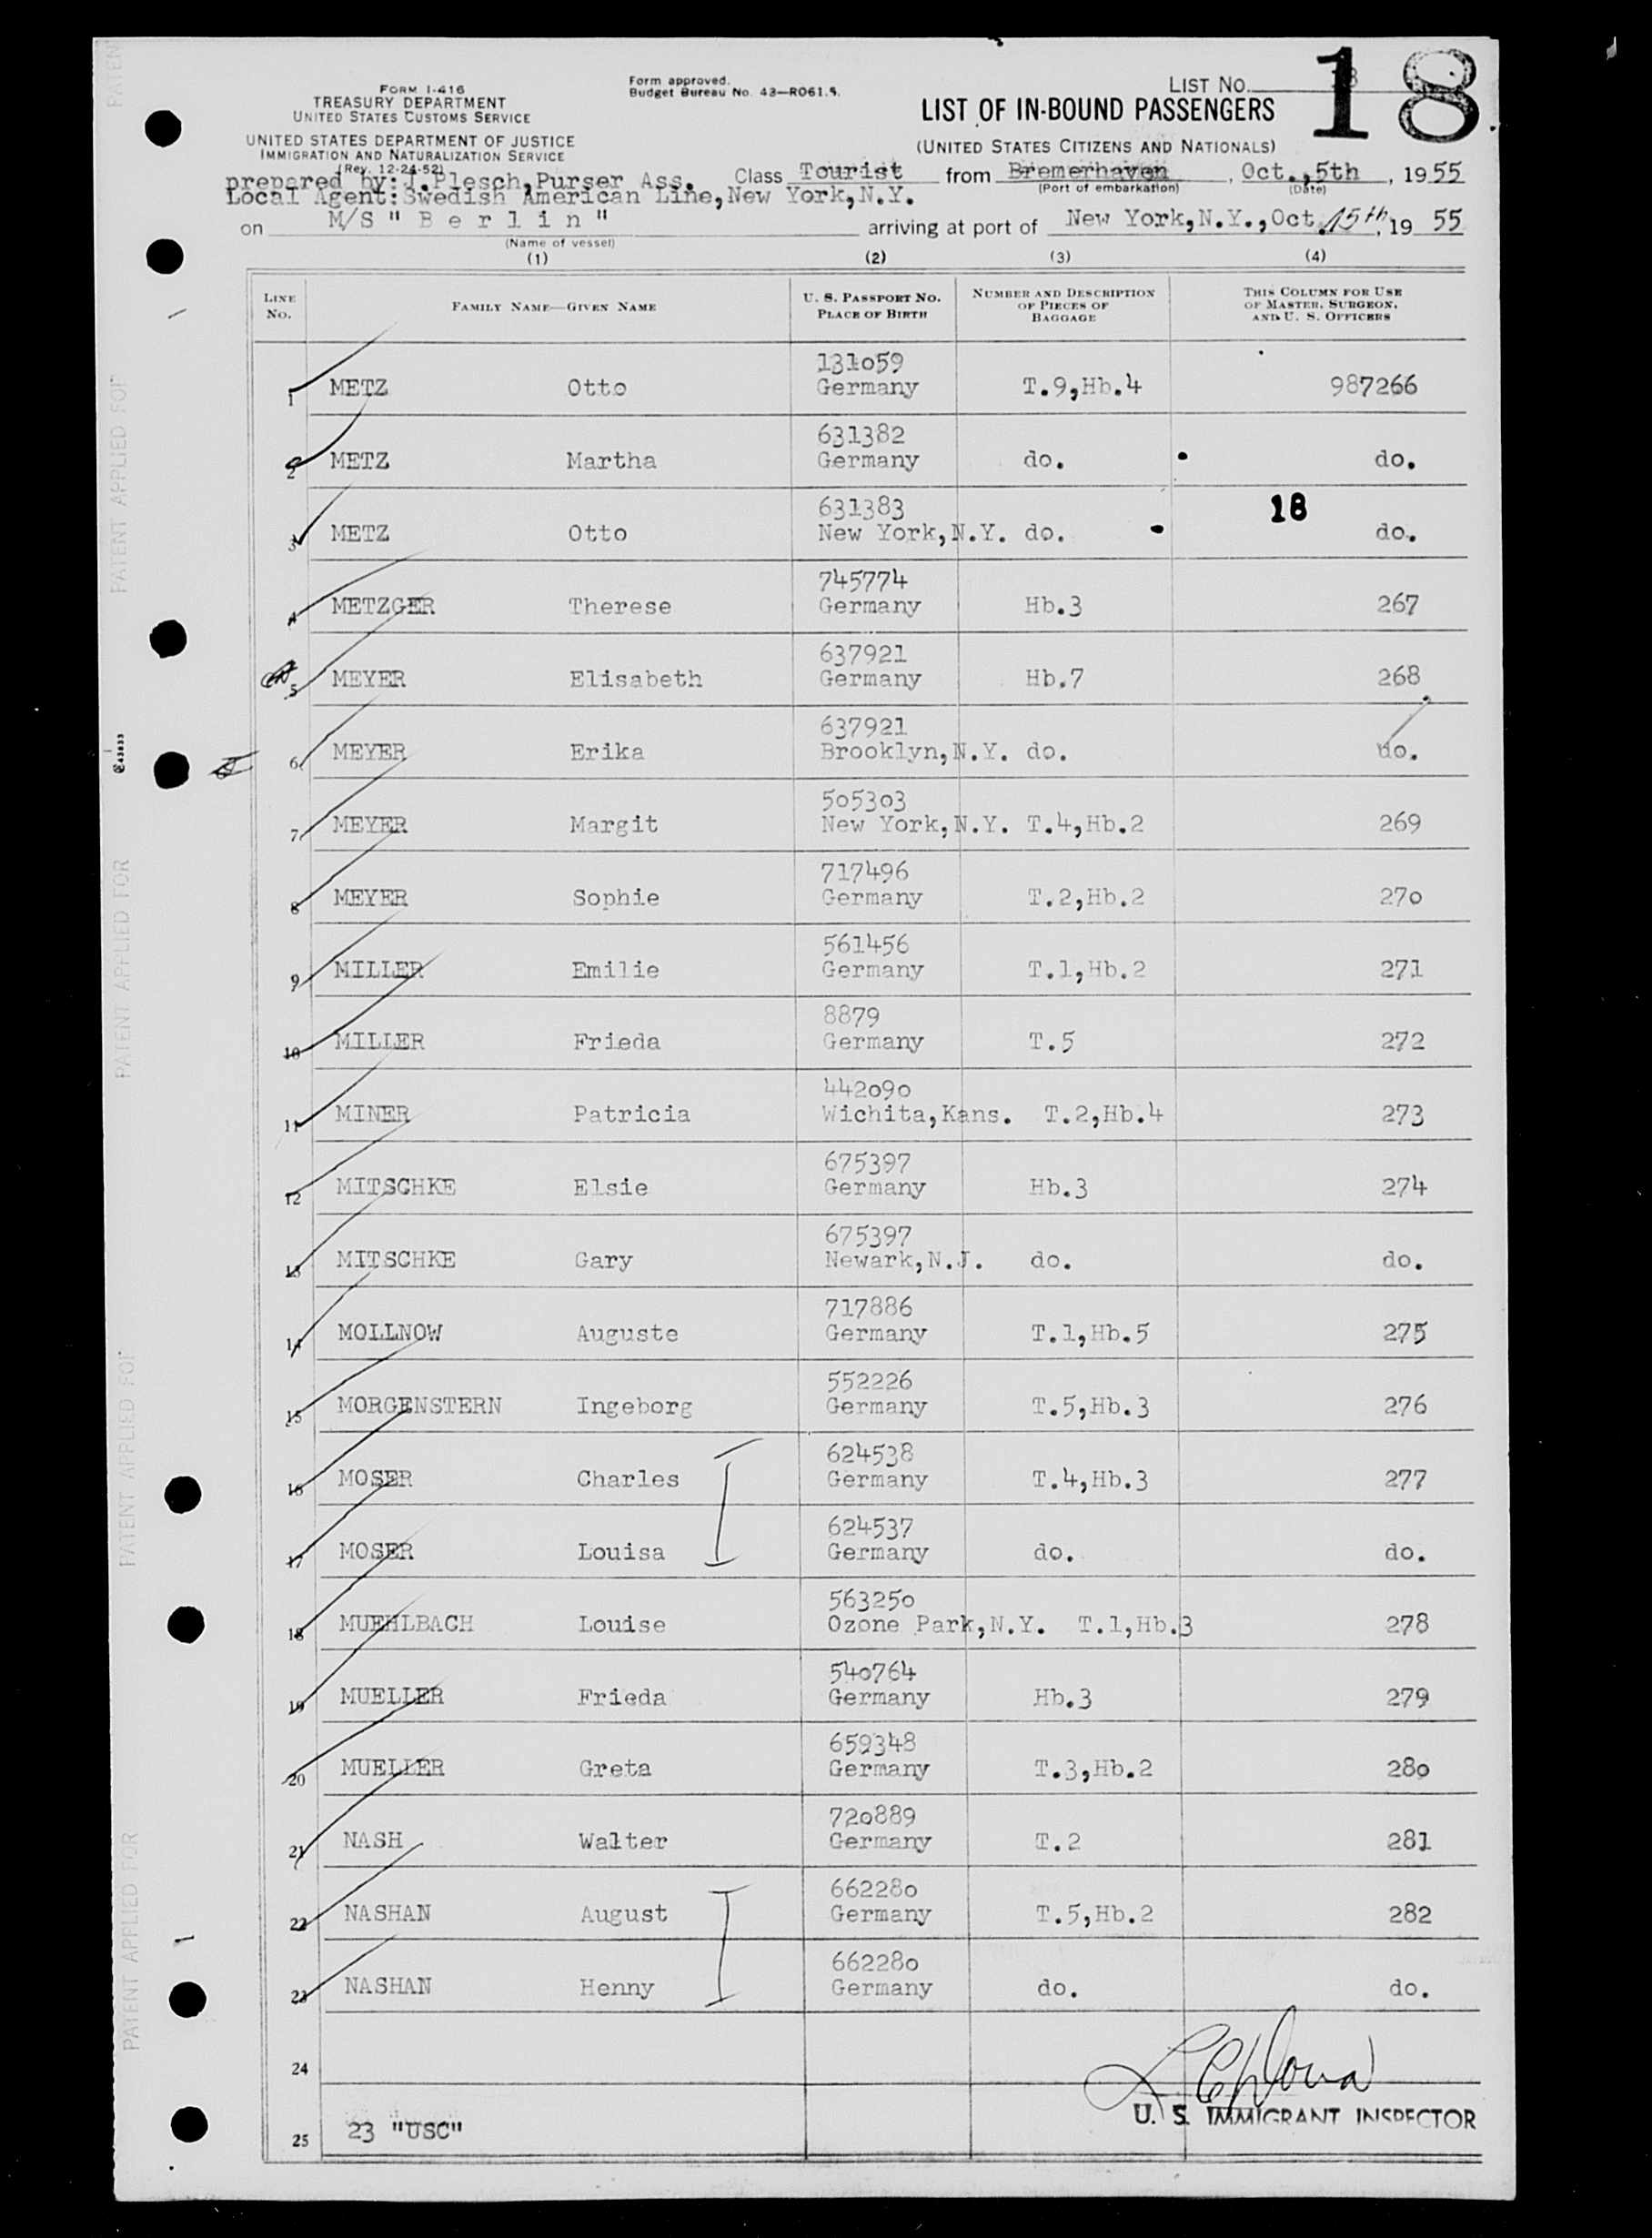 FORM I-416
TREASURY DEPARTMENT
UNITED STATES CUSTOMS SERVICE
UNITED STATES DEPARTMENT OF JUSTICE
IMMIGRATION AND NATURALIZATION SERVICE
(Rev. 12-24-52)
Form approved.
Budget Bureau No. 43—R061.5.
LIST No. 18
18
LIST OF IN-BOUND PASSENGERS
(UNITED STATES CITIZENS AND NATIONALS)
prepared by: J.Plesch,Purser Ass. Class Tourist from Bremerhaven, Oct.,5th, 1955
(Port of embarkation) (Date)
Local Agent:Swedish American Line,New York,N.Y.
on M/S " B e r l i n " arriving at port of New York,N.Y.,Oct.15th, 19 55
(Name of vessel)
(1) (2) (3) (4)
LINE NO. FAMILY NAME—GIVEN NAME U. S. PASSPORT NO. PLACE OF BIRTH NUMBER AND DESCRIPTION OF PIECES OF BAGGAGE THIS COLUMN FOR USE OF MASTER, SURGEON, AND U. S. OFFICERS
131059
1 METZ Otto Germany T.9,Hb.4 987266
631382
2 METZ Martha Germany do. do.
631383 18
3 METZ Otto New York,N.Y. do. do.
745774
4 METZGER Therese Germany Hb.3 267
637921
5 MEYER Elisabeth Germany Hb.7 268
637921
6 MEYER Erika Brooklyn,N.Y. do. do.
505303
7 MEYER Margit New York,N.Y. T.4,Hb.2 269
717496
8 MEYER Sophie Germany T.2,Hb.2 270
561456
9 MILLER Emilie Germany T.1,Hb.2 271
8879
10 MILLER Frieda Germany T.5 272
442090
11 MINER Patricia Wichita,Kans. T.2,Hb.4 273
675397
12 MITSCHKE Elsie Germany Hb.3 274
675397
13 MITSCHKE Gary Newark,N.J. do. do.
717886
14 MOLLNOW Auguste Germany T.1,Hb.5 275
552226
15 MORGENSTERN Ingeborg Germany T.5,Hb.3 276
624538
16 MOSER Charles Germany T.4,Hb.3 277
624537
17 MOSER Louisa Germany do. do.
563250
18 MUEHLBACH Louise Ozone Park,N.Y. T.1,Hb.3 278
540764
19 MUELLER Frieda Germany Hb.3 279
659348
20 MUELLER Greta Germany T.3,Hb.2 280
720889
21 NASH Walter Germany T.2 281
662280
22 NASHAN August Germany T.5,Hb.2 282
662280
23 NASHAN Henny Germany do. do.
24
U. S. IMMIGRANT INSPECTOR
25 23 "USC"
PATENT APPLIED FOR
PATENT APPLIED FOR
PATENT APPLIED FOR
PATENT APPLIED FOR